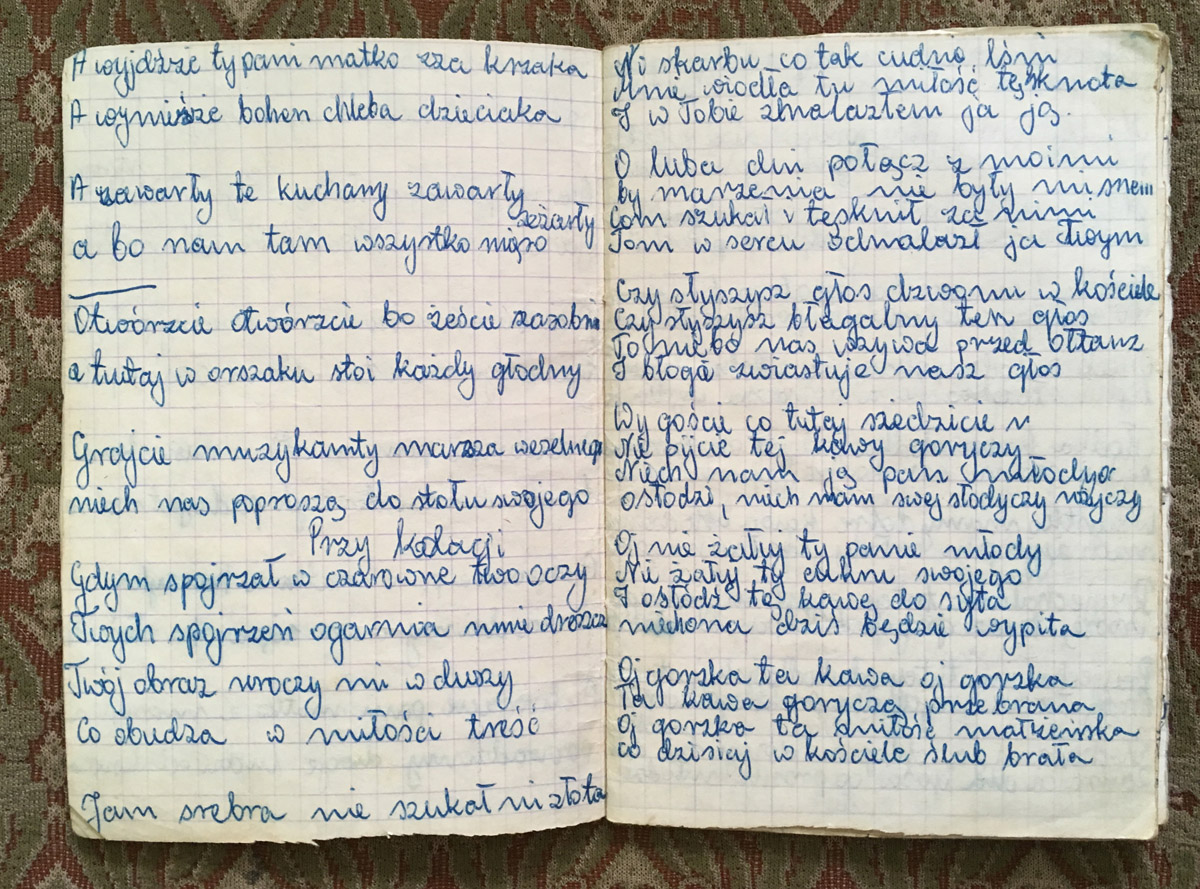 A wyjdźże ty pani matko zza krzaka
A wynieśże bohen chleba dzieciaka
A zawarły te kuchany zawarły
zeżarły
a bo nam tam wszystko mięso
Otwórzcie otwórzcie bo żeście zasobni
a tutaj w orszaku stoi każdy głodny
Grajcie muzykamty marsza weselnego
niech nas poproszą do stołu swojego
Przy kolacji
Gdym spojrzał w czarowne two oczy
Twych spojrzeń ogarnia mnie dreszcz
Twój obraz uroczy mi w duszy
Co obudza w miłości treść
Jam srebra nie szukał ni złota
Ni skarbu co tak cudnie lśni
Mnie wiodła tu miłość tęsknota
I w Tobie znalazłem ja ją.
O luba dłń połącz z moimi
by marzenia nie były mi snem
Com szukał i tęsknił za nimi
Tom w sercu odnalazł ja twym
Czy słyszysz głos dzwonu w kościele
Czy słyszysz błagalny ten głos
To niebo nas wzywa przed ołtarz
I błogo zwiastuje nasz głos
Wy goście co tutaj siedzicie
Nie pijcie tej kawy goryczy
Niech nam ją pan młody
osłodzi, niech nam swej słodyczy użyczy
Oj nie żałuj ty panie młody
Nie żałuj ty cukru swojego
I osłódź tę kawę do syta
niechona dziś będzie wypita
Oj gorzka ta kawa oj gorzka
Ta kawa goryczą przebrana
Oj gorzka ta miłość małżeńska
co dzisiaj w kościele ślub brała